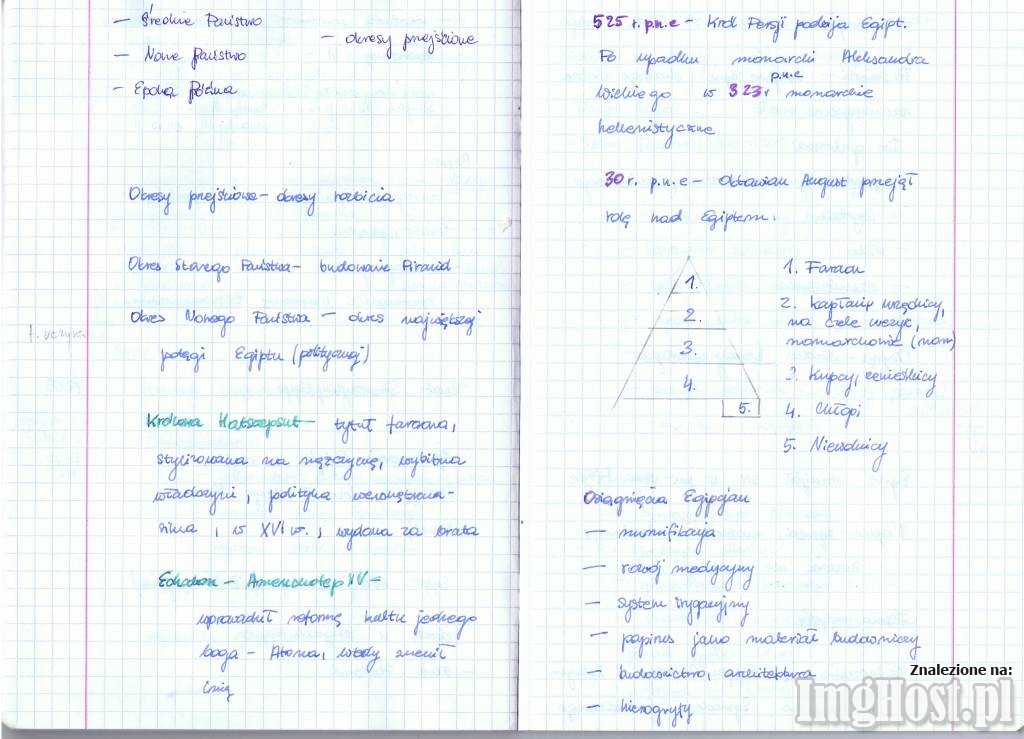 – Średnie Państwo
– okresy przejściowe
– Nowe Państwo
– Epoka Późna
Okresy przejściowe – okresy rozbicia
Okres Starego Państwa – budowanie Piramid
Okres Nowego Państwa – okres największej
potęgi Egiptu (politycznej)
Królowa Hatszepsut – tytuł faraona,
stylizowana na mężczyznę, wybitna
władczyni, polityka wewnętrzna-
silna, w XVI w., wydana za brata
Echnaton – Amenhotep IV –
wprowadził reformę kultu jednego
boga – Atona, wtedy zmienił
imię
525 r. p.n.e – Król Persji podbija Egipt.
Po upadku monarchii Aleksandra
Wielkiego w 323 r p.n.e monarchie
hellenistyczne
30 r. p.n.e – Oktawian August przejął
rolę nad Egiptem.
1.
2.
3.
4.
5.
1. Faraon
2. kapłani, urzędnicy,
na czele wezyr,
nomarchowie (nom)
3. Kupcy, rzemieślnicy
4. Chłopi
5. Niewolnicy
Osiągnięcia Egipcjan
– mumifikacja
– rozwój medycyny
– system irygacyjny
– papirus jako materiał budowniczy
– budownictwo, architektura
– hieroglify
Znalezione na:
ImgHost.pl